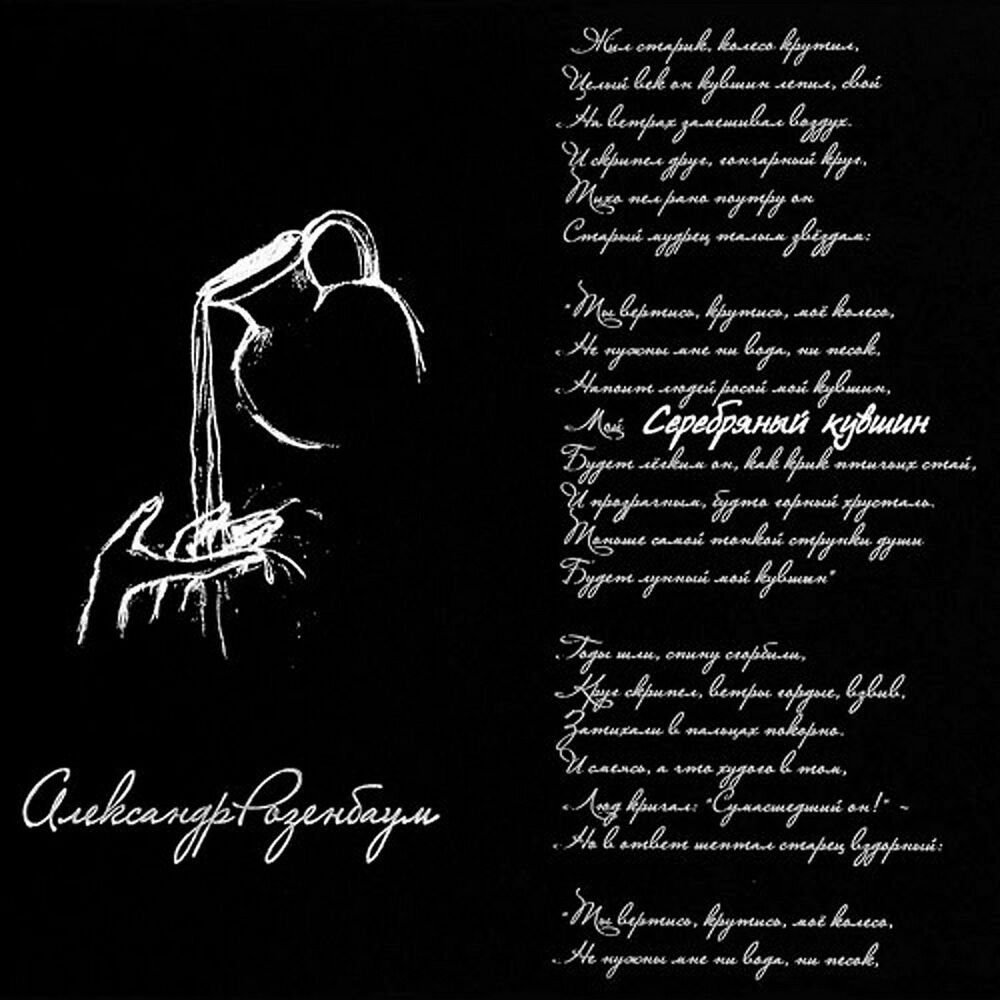 Жил старик, колесо крутил,
Целый век он кувшин лепил, свой
На ветрах замешивал воздух.
И скрипел друг, гончарный круг,
Тихо пел рано поутру он
Старый мудрец талым звёздам:
"Ты вертись, крутись, моё колесо,
Не нужны мне ни вода, ни песок,
Напоит людей росой мой кувшин,
Мой Серебряный кувшин
Будет лёгким он, как крик птичьих стай,
И прозрачным, будто горный хрусталь.
Тоньше самой тонкой струнки души
Будет лунный мой кувшин"
Годы шли, спину сгорбили,
Круг скрипел, ветры гордые, взвив,
Затихали в пальцах покорно.
И смеясь, а что худого в том,
Люд кричал: "Сумасшедший он!" -
Но в ответ шептал старец вздорный:
"Ты вертись, крутись, моё колесо,
Не нужны мне ни вода, ни песок,
Александр Розенбаум